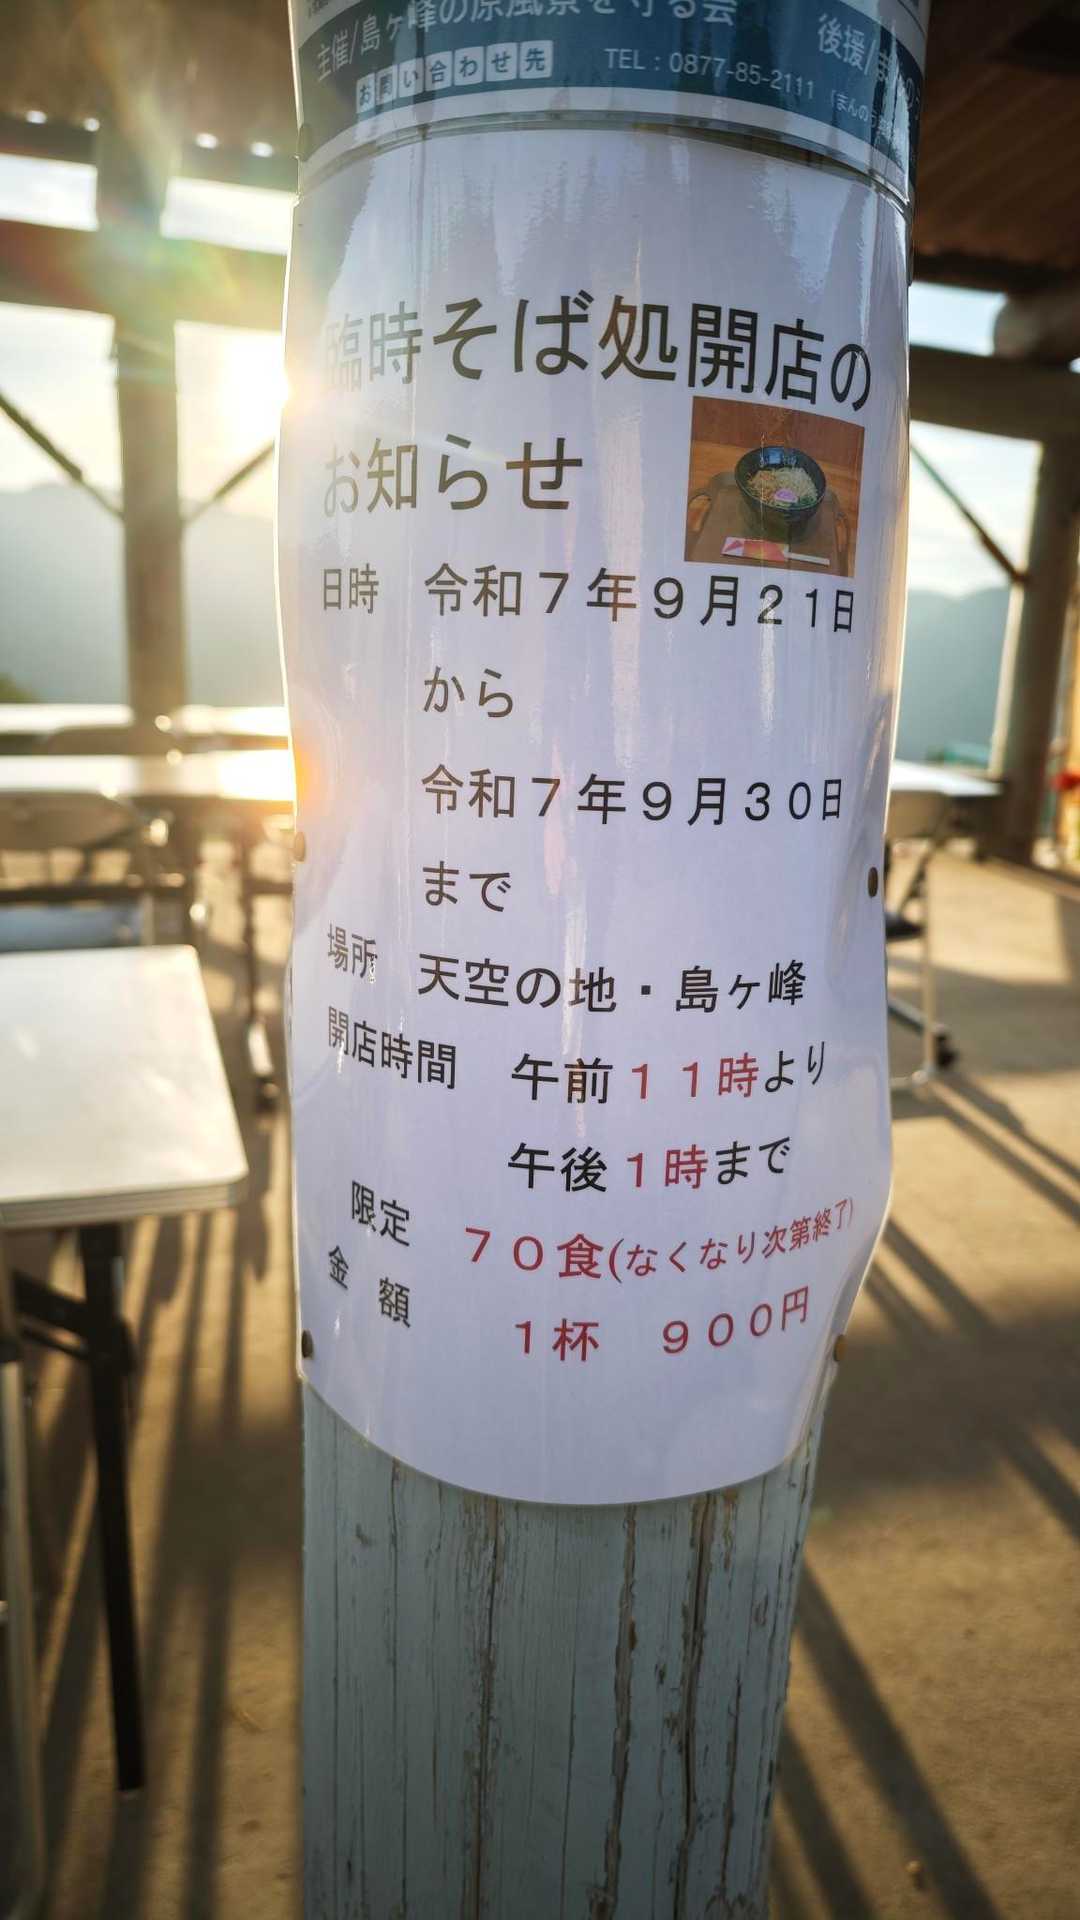 主催/島ヶ峰の原風景を守る会 後援/まんのう
お問い合わせ先 TEL：0877-85-2111 （まんのう
臨時そば処開店の
お知らせ
日時 令和７年９月２１日
から
令和７年９月３０日
まで
場所 天空の地・島ヶ峰
開店時間 午前１１時より
午後１時まで
限定 ７０食(なくなり次第終了)
金額 １杯 ９００円